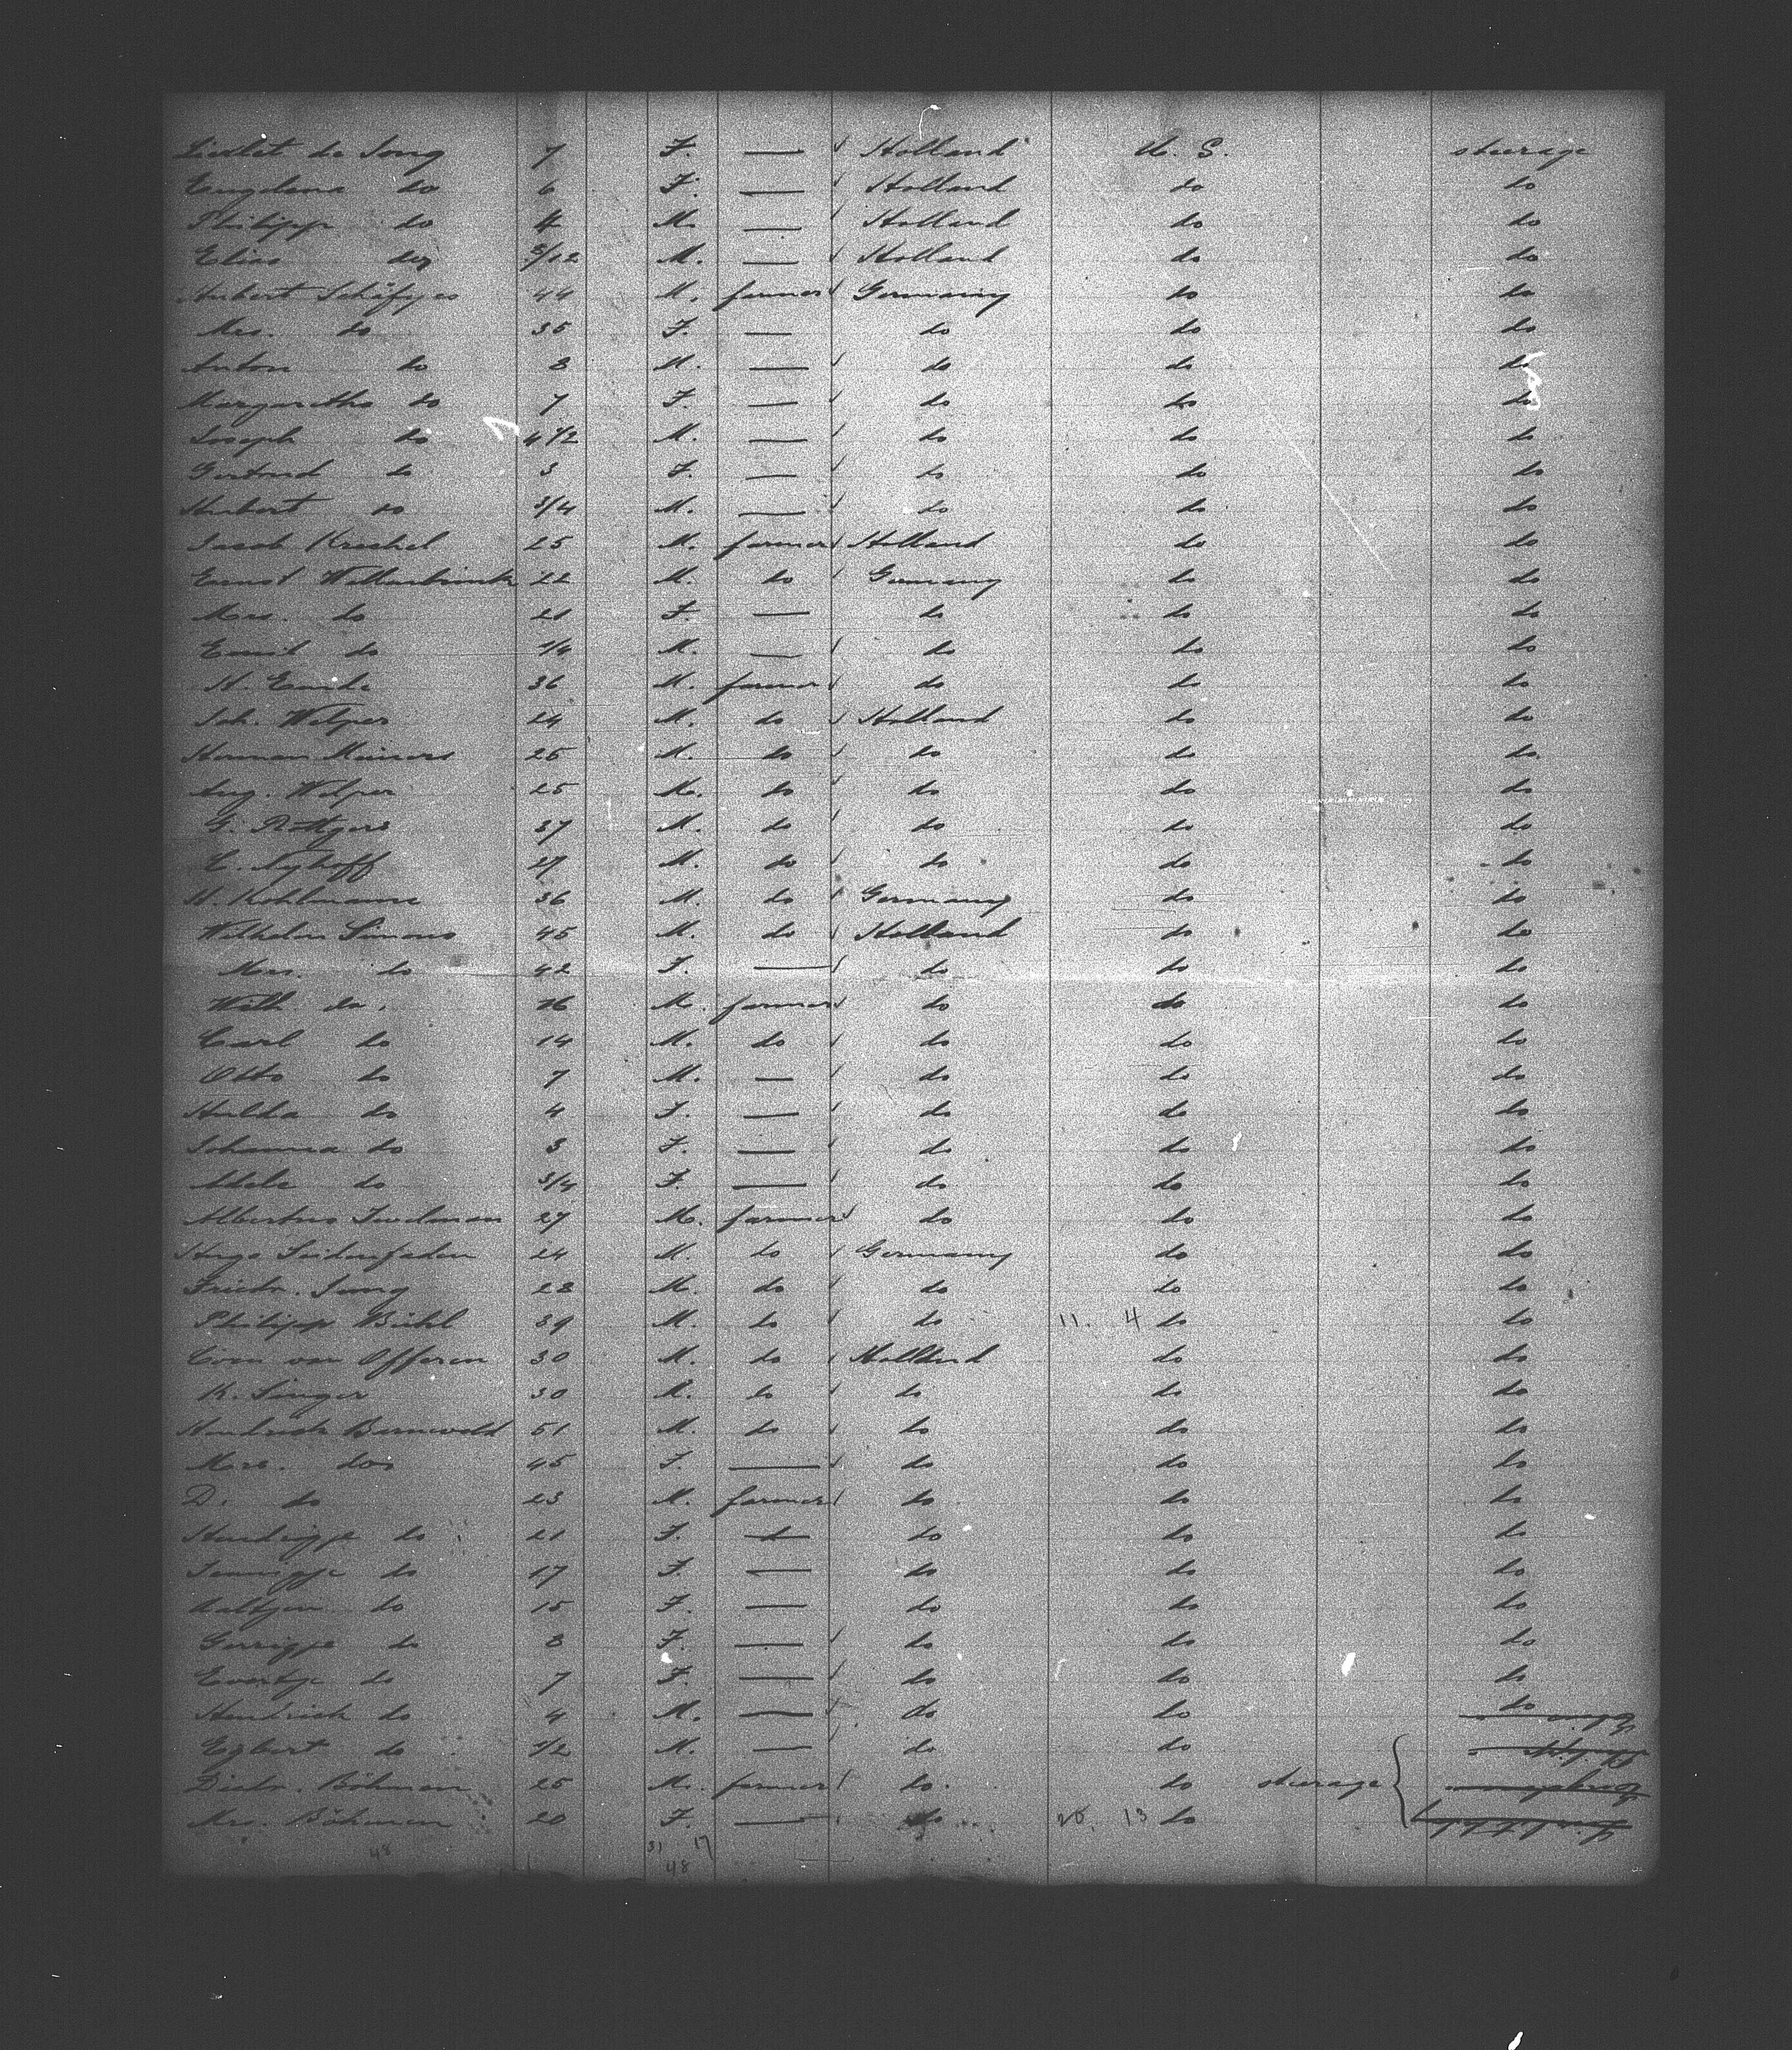 de Jong 7 F. — Holland U. S. steerage
do 6 F. — Holland do do
Philipp do 4 M. — Holland do do
Elias do 3/12 M. — Holland do do
Hubert Schäfges 44 M. farmer Germany do do
Mrs. do 35 F. — do do do
Anton do 8 M. — do do do
Margaretha do 7 F. — do do do
Joseph do 4 1/2 M. — do do do
Gertrud do 3 F. — do do do
Hubert do 3/4 M. — do do do
Jacob Krechel 25 M. farmer Holland do do
Ernst 22 M. do Germany do do
Mrs. do 21 F. — do do do
Emil do 1/4 M. — do do do
H. 36 M. farmer do do do
Joh. Wilper 24 M. do Holland do do
Herman Meiners 25 M. do do do do
Aug. Wilper 25 M. do do do do
G. Röttgers 37 M. do do do do
C. Syhoff 27 M. do do do do
H. Kohlmann 36 M. do Germany do do
Wilhelm Simons 45 M. do Holland do do
Mrs. do 42 F. — do do do
Wilh. do. 16 M. farmer do do do
Carl do 14 M. do do do do
Otto do 7 M. — do do do
Hulda do 4 F. — do do do
Johanna do 3 F. — do do do
Adele do 3/4 F. — do do do
Albertus 27 M. farmer do do do
Hugo Seidenfaden 24 M. do Germany do do
Friedr. Jung 28 M. do do do do
Philipp Bühl 39 M. do do 11. 4 do do
van Offeren 30 M. do Holland do do
K. Singer 30 M. do do do do
Hendrik Barneveld 51 M. do do do do
Mrs. do 45 F. — do do do
D. do 23 M. farmer do do do
Hendrigje do 21 F. — do do do
Jannigje do 17 F. — do do do
Aaltjen do 15 F. — do do do
Gerrigje do 8 F. — do do do
Evertje do 7 F. — do do do
Hendrick do 4 M. — do do do
Egbert do 1/2 M. — do do
Diedr. Böhmen 25 M. farmer do. do steerage
Mrs. Böhmen 20 F. — do 20. 13 do
48 31 17
48